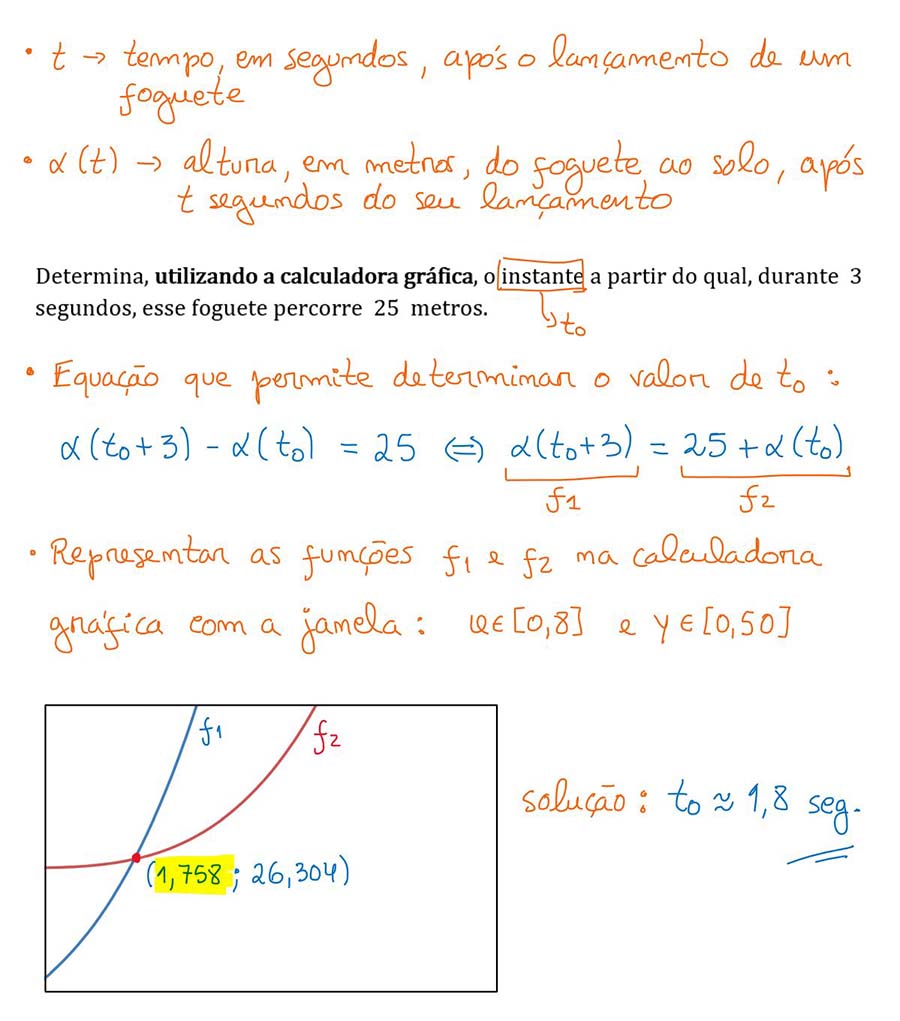 • t → tempo, em segundos, após o lançamento de um
foguete
• α(t) → altura, em metros, do foguete ao solo, após
t segundos do seu lançamento
Determina, utilizando a calculadora gráfica, o instante a partir do qual, durante 3
segundos, esse foguete percorre 25 metros.
↳ t₀
• Equação que permite determinar o valor de t₀ :
α(t₀+3) - α(t₀) = 25 ⇔ α(t₀+3) = 25 + α(t₀)
f1 f2
• Representar as funções f1 e f2 na calculadora
gráfica com a janela : x∈[0,8] e y∈[0,50]
f1 f2
(1,758 ; 26,304)
solução : t₀ ≈ 1,8 seg.